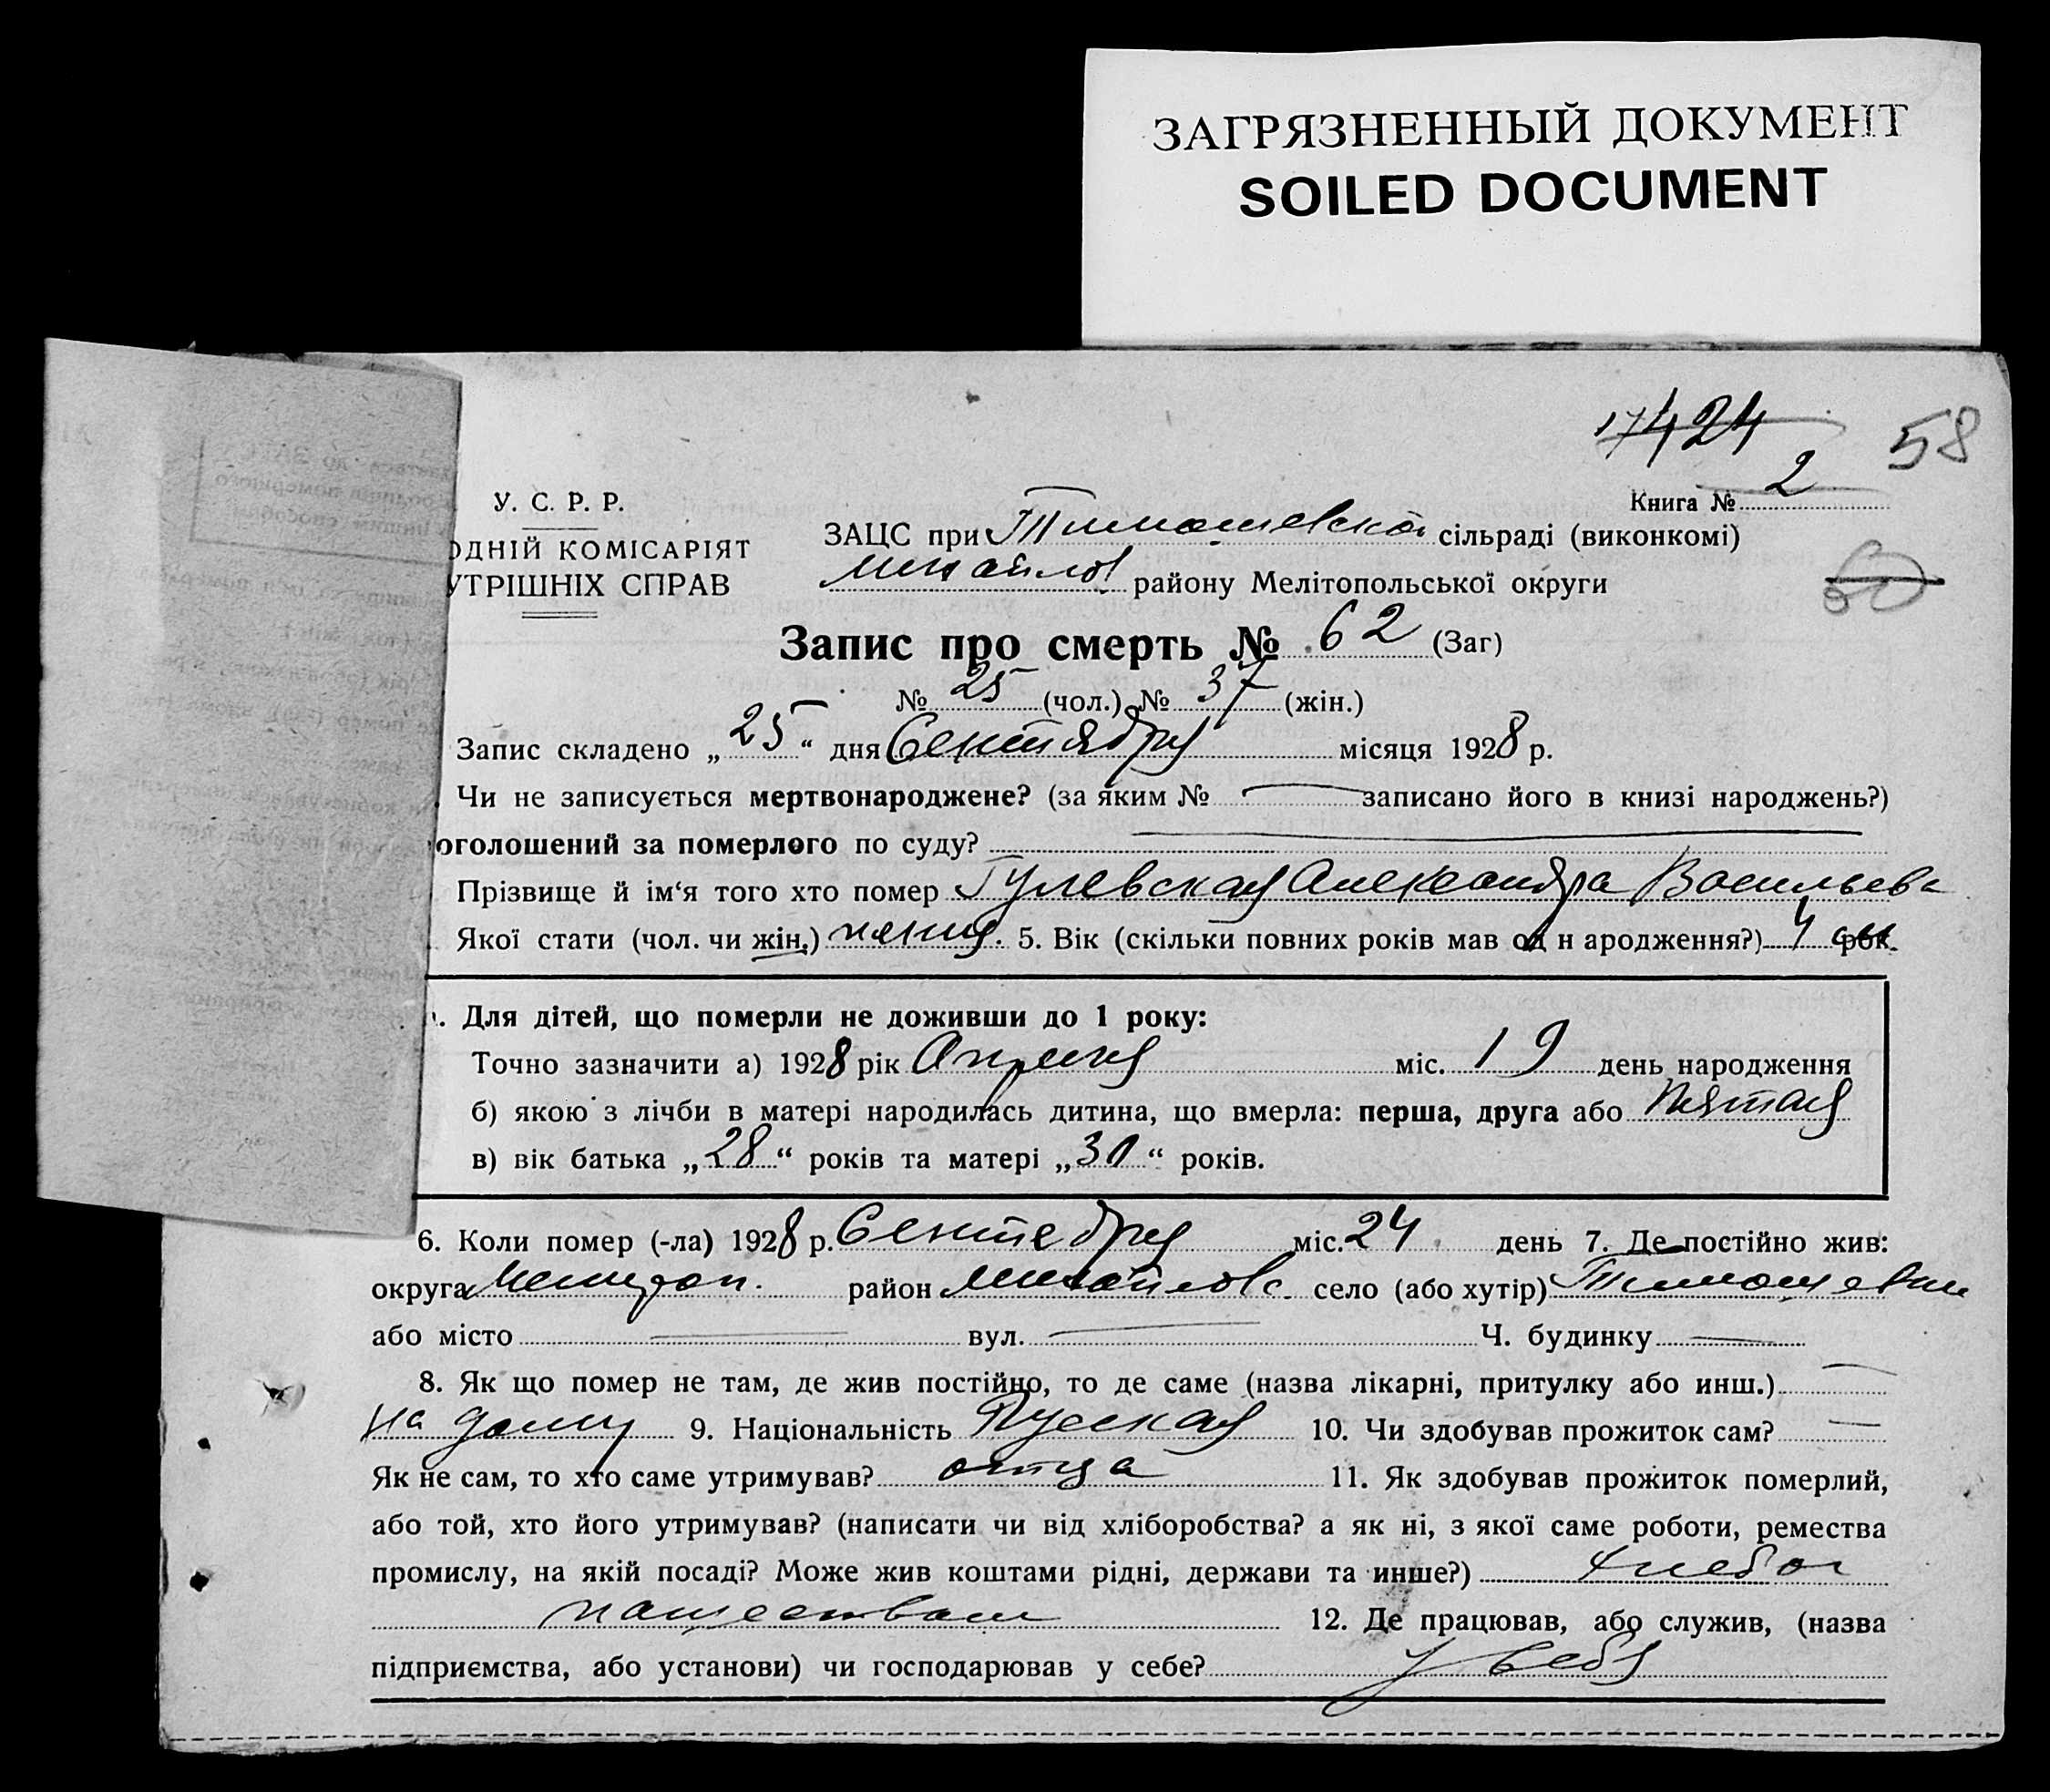 ЗАГРЯЗНЕННЫЙ ДОКУМЕНТ
SOILED DOCUMENT
17424
58
Книга № 2
У. С. Р. Р.
ОДНІЙ КОМІСАРІЯТ
УТРІШНІХ СПРАВ
ЗАЦС при Тимошевской сільраді (виконкомі)
Михайлов району Мелітопольської округи
60
Запис про смерть № 62 (Заг)
№ 25 (чол.) № 37 (жін.)
Запис складено „25“ дня Сентября місяця 1928 р.
Чи не записується мертвонароджене? (за яким № записано його в книзі народжень?)
оголошений за померлого по суду?
Прізвище й ім‘я того хто помер Гулевская Александра Васильева
Якої стати (чол. чи жін.) 5. Вік (скільки повних років мав од н ародження?) 4 рок.
. Для дітей, що померли не доживши до 1 року:
Точно зазначити а) 1928 рік Апреля міс. 19 день народження
б) якою з лічби в матері народилась дитина, що вмерла: перша, друга або пятая
в) вік батька „28“ років та матері „30“ років.
6. Коли помер (-ла) 1928 р. Сентебря міс. 24 день 7. Де постійно жив:
округа Мелитоп. район Михайловс. село (або хутір) Тимошевки
або місто вул. Ч. будинку
8. Як що помер не там, де жив постійно, то де саме (назва лікарні, притулку або инш.)
на дому 9. Національність Руская 10. Чи здобував прожиток сам?
Як не сам, то хто саме утримував? отца 11. Як здобував прожиток померлий,
або той, хто його утримував? (написати чи від хліборобства? а як ні, з якої саме роботи, ремества
промислу, на якій посаді? Може жив коштами рідні, держави та инше?) хлебо
пашеством 12. Де працював, або служив, (назва
підприємства, або установи) чи господарював у себе? у себя